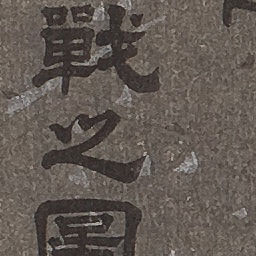 戰之圖